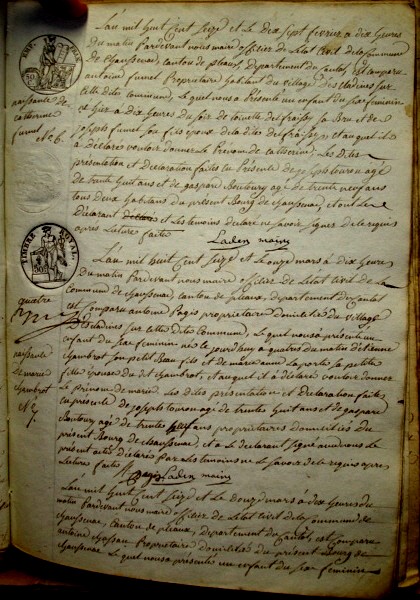 L'an mil huit Cent Seize et le dix Sept fevrier a dix heures
du matin Pardevant nous maire officier de l'état Civil de la Commun
de chaussenac, Canton de pleaux, Departement du Cantal, est Comparu
antoine funel Proprietaire habitant du village
Dites Commun, le quel nous a présenté un enfant du Sexe feminin
hier a Dix heures du Soir de
joseph funel Son fils epoux de la dite et au quel il
a déclaré vouloir donner le Prénom de Catherine, Les dites
présentation et Déclaration faites en Présence de joseph agé
de trente huit ans et de gaspard Boutoury agé de trente neuf ans
tous deux habitans du présent Bourg de Chaussenac, et ont le
Déclarant et les temoins declaré ne Savoir Signer de le requis
apres Lecture faite
Laden maire
naissance de
Catherine
funel
N.° 6.
TIMBRE ROYAL
L'an mil huit Cent Seize et le onze mars a dix heures
du matin Pardevant nous maire officier de l'état Civil de la
Commun de Chaussenac, Canton de pleaux, departement du Cantal
est Comparu antoine Pagis proprietaire domicilié du village
Descladines Sur cette dites Commun, Le quel nous a présenté un
enfant du Sexe feminin née le jourdhuy a quatre du matin d'etienne
Chambrot Son petit Beau fils et de marie anne la porte la petite
fille epouse du dit Chambrot, et au quel il a déclaré vouloir donner
le prénom de marie. Les dites présentation et Declaration faites
en présence de joseph agé de trente huit ans et de gaspard
Boutoury agé de trente neuf ans proprietaires domiciliés du
présent Bourg de Chaussenac, et a le declarant Signé avec nous le
présent acte déclaré par les temoins ne le Savoir de le requis apres
Lecture faite
Pagis Laden maire
quatre
naissance
de marie
Chambrot
N.° 7.
L'an mil huit Cent Seize et le douze mars a dix heures du
matin Pardevant nous maire officier de l'état Civil de la Commun de
Chaussenac, Canton de pleaux, departement du Cantal, est Comparu
antoine Proprietaire domicilié du présent Bourg de
Chaussenac Le quel nous a présenté un enfant du Sexe feminin